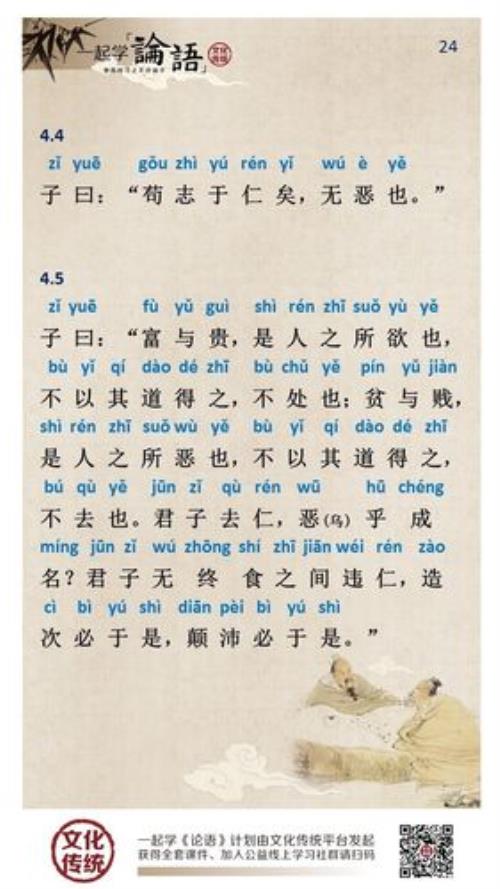 一起学「論語」
文化传统
24
4.4
zǐ yuē gǒu zhì yú rén yǐ wú è yě
子曰：“苟志于仁矣，无恶也。”
4.5
zǐ yuē fù yǔ guì shì rén zhī suǒ yù yě
子曰：“富与贵，是人之所欲也，
bù yǐ qí dào dé zhī bù chǔ yě pín yǔ jiàn
不以其道得之，不处也；贫与贱，
shì rén zhī suǒ wù yě bù yǐ qí dào dé zhī
是人之所恶也，不以其道得之，
bú qù yě jūn zǐ qù rén wū hū chéng
不去也。君子去仁，恶(乌)乎成
míng jūn zǐ wú zhōng shí zhī jiān wéi rén zào
名？君子无终食之间违仁，造
cì bì yú shì diān pèi bì yú shì
次必于是，颠沛必于是。”
文化传统
一起学《论语》计划由文化传统平台发起
获得全套课件、加入公益线上学习社群请扫码